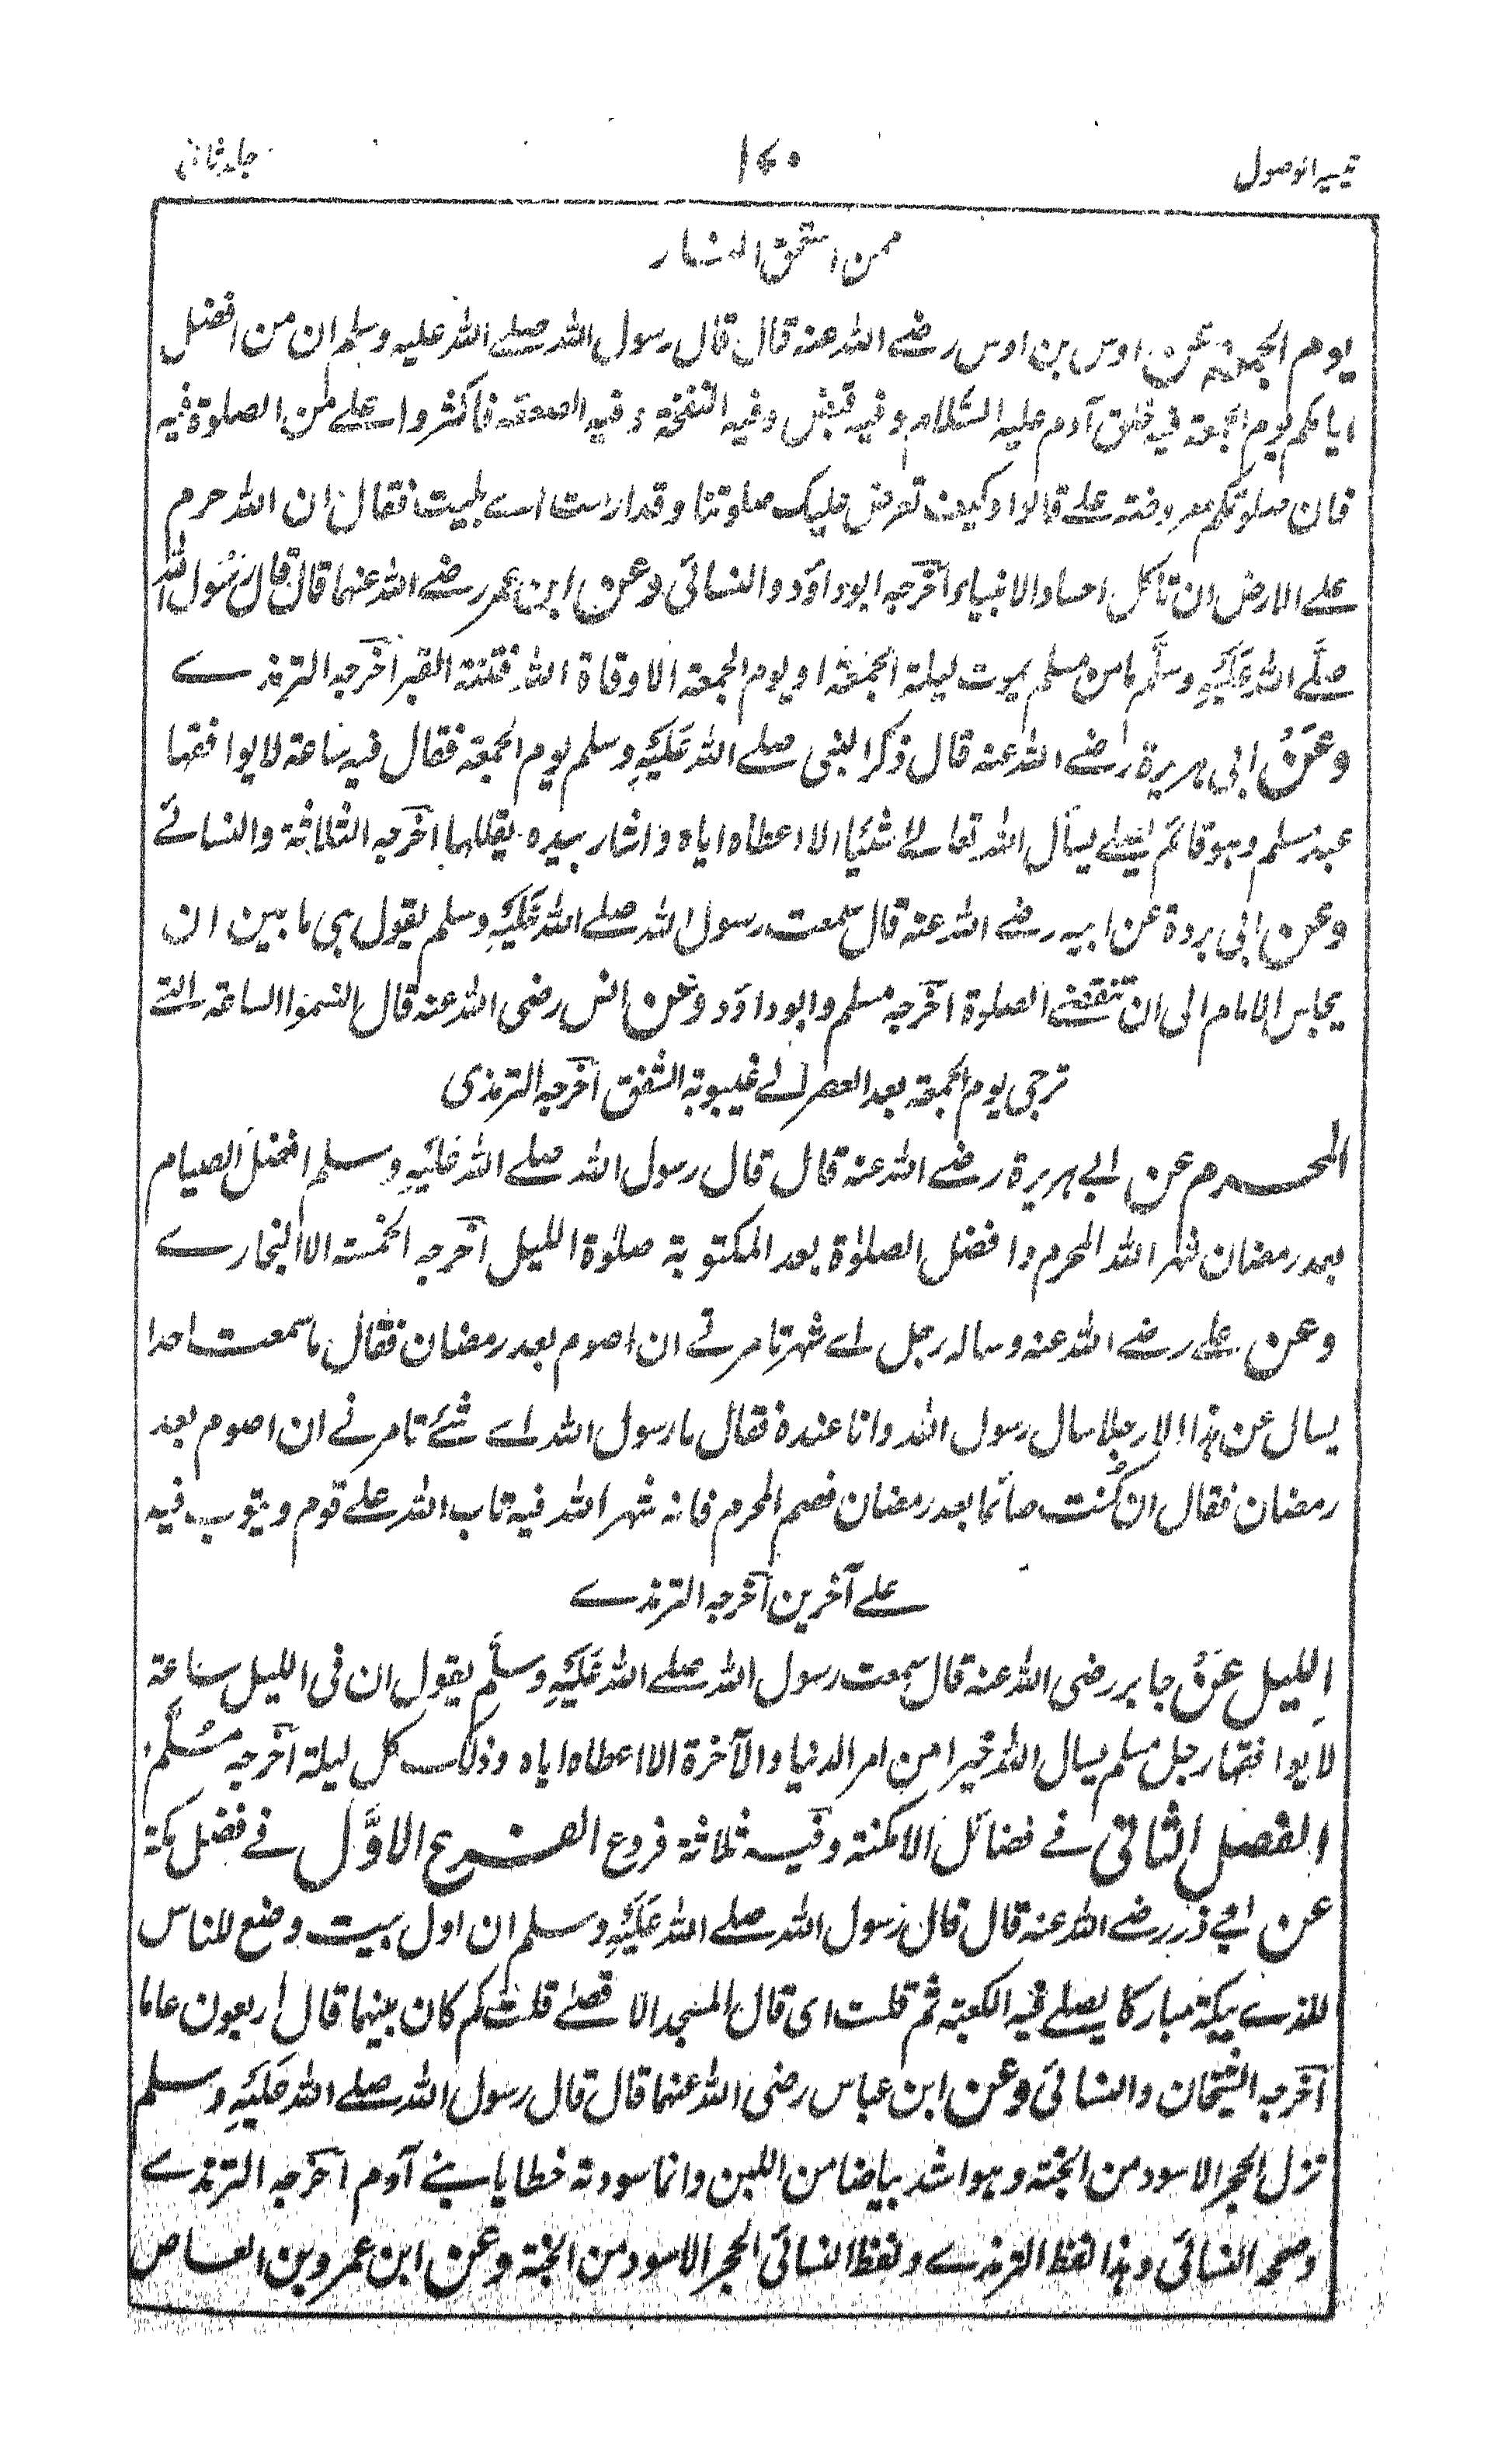 تيسير الوصول
١٧٠
جلد ثانى
ممن استحق النار
يوم الجمعة عن اوس بن اوس رضے الله عنه قال قال رسول الله صلے الله عليه وسلم ان من افضل
ايامكم يوم الجمعة فيه خلق آدم عليه السَّلام وفيه قبض وفيه النفخة وفيه الصعقة فاكثروا علے من الصلوة فيه
فان صلوتكم معروضة علے قالوا وكيف تعرض عليك صلوتنا وقد ارمت اے بليت فقال ان الله حرم
علے الارض ان تاكل اجساد الانبياء اخرجه ابو داوٗد والنسائى وعن ابن عمر رضے الله عنهما قال قال رسُول الله
صلَّے الله عَلَيْهِ وسلَّم ما من مسلم يموت ليلة الجمعة او يوم الجمعة الا وقاه الله فتنة القبر اخرجه الترمذے
وعَنْ ابى هريرة رضے الله عنه قال ذكر النبى صلے الله عَلَيْهِ وسلم يوم الجمعة فقال فيه ساعة لا يوافقها
عبد مسلم وهو قائم يصلے يسأل الله تعالے شيئا الا اعطاه اياه واشار بيده يقللها اخرجه الثلاثة والنسائے
وعن ابى بردة عن ابيه رضے الله عنه قال سمعت رسول الله صلے الله عَلَيْهِ وسلم يقول هى ما بين ان
يجلس الامام الى ان تنقضے الصلوة اخرجه مسلم وابو داوٗد وعن انس رضى الله عنه قال التمسوا الساعة التے
ترجى يوم الجمعة بعد العصر الے غيبوبة الشفق اخرجه الترمذى
المحرم عن ابے هريرة رضے الله عنه قال قال رسول الله صلے الله عَلَيْهِ وسلم افضل الصيام
بعد رمضان شهر الله المحرم وافضل الصلوٰة بعد المكتوبة صلوٰة الليل اخرجه الخمسة الا البخارے
وعن علے رضے الله عنه وساله رجل اے شهر تامرنے ان اصوم بعد رمضان فقال ما سمعت احدا
يسال عن هذا الا رجلا سال رسول الله وانا عنده فقال يا رسول الله اے شئے تامرنے ان اصوم بعد
رمضان فقال ان كُنت صائما بعد رمضان فصم المحرم فانه شهر الله فيه تاب الله علے قوم ويتوب فيه
علے آخرين اخرجه الترمذے
الليل عَنْ جابر رضى الله عنه قال سمعت رسول الله صلے الله عَلَيْهِ وسلَّم يقول ان فى الليل ساعة
لا يوافقها رجل مسلم يسال الله خيرا من امر الدنيا والآخرة الا اعطاه اياه وذلك كل ليلة اخرجه مسُلَّم
الفصل الثانى فے فضائل الامكنة وفيه ثلاثة فروع الفرع الاوَّل فے فضل مكة
عن ابے ذر رضے الله عنه قال قال رسول الله صلے الله عَلَيْهِ وسلم ان اول بيت وضع للناس
للذے ببكة مباركا يصلے فيه الكعبة ثم قلت اى قال المسجد الاقصے قلت كم كان بينهما قال اربعون عاما
اخرجه الشيخان والنسائى وعن ابن عباس رضى الله عنهما قال قال رسول الله صلے الله عَلَيْهِ وسلم
نزل الحجر الاسود من الجنة وهو اشد بياضا من اللبن وانما سودته خطايا بنے آدم اخرجه الترمذے
وصححه النسائى وهذا لفظ الترمذے ولفظ النسائى الحجر الاسود من الجنة وعن ابن عمرو بن العاص